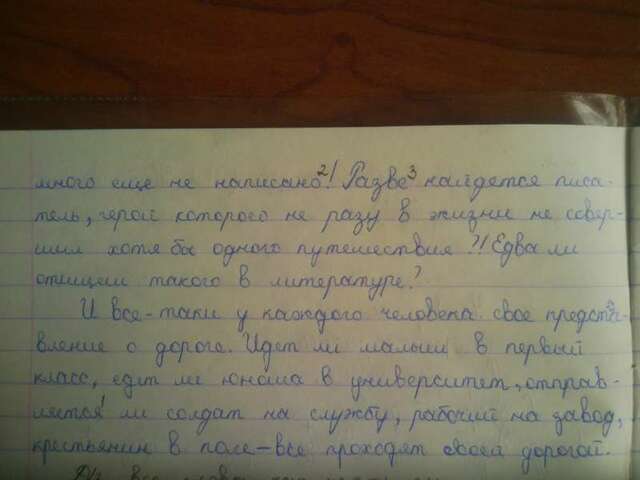 много еще не написано²! Разве³ найдется писа-
тель, герой которого не разу в жизни не совер-
шил хотя бы одного путешествия?! Едва ли
отыщем такого в литературе?
И все-таки у каждого человека свое предста-
вление о дороге. Идет ли малыш в первый
класс, едет ли юноша в университет, отправ-
ляется ли солдат на службу, рабочий на завод,
крестьянин в поле – все проходят своей дорогой.